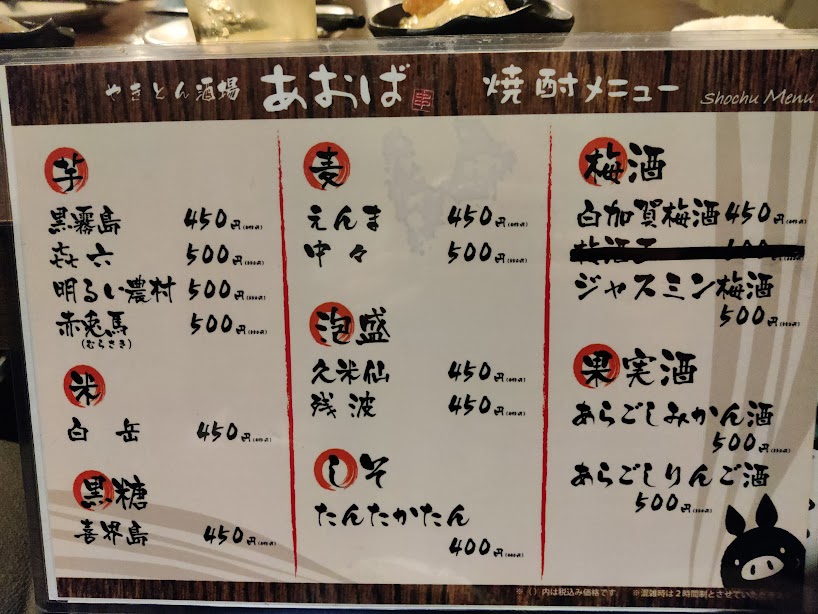 やきとん酒場 あおば 焼酎メニュー Shochu Menu
芋
黒霧島 450円
㐂六 500円
明るい農村 500円
赤兎馬 500円
(むらさき)
米
白岳 450円
黒糖
喜界島 450円
麦
えんま 450円
中々 500円
泡盛
久米仙 450円
残波 450円
しそ
たんたかたん
400円
梅酒
白加賀梅酒 450円
ジャスミン梅酒
500円
果実酒
あらごしみかん酒
500円
あらごしりんご酒
500円
※（）内は税込み価格です ※混雑時は2時間制とさせていた